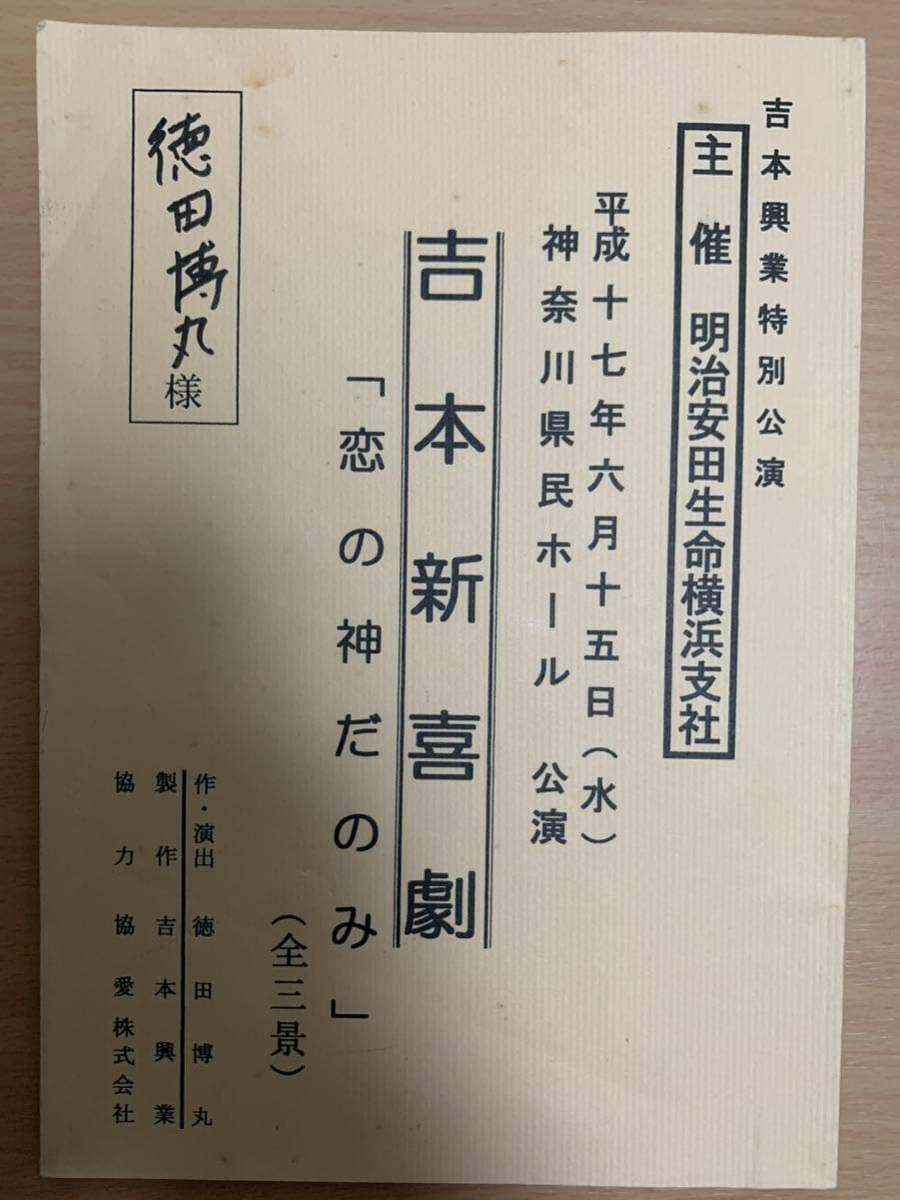 吉本興業特別公演
主催 明治安田生命横浜支社
平成十七年六月十五日(水)
神奈川県民ホール 公演
吉本新喜劇
「恋の神だのみ」
(全三景)
作・演出 徳田博丸
製作 吉本興業
協力 協愛株式会社
徳田博丸様